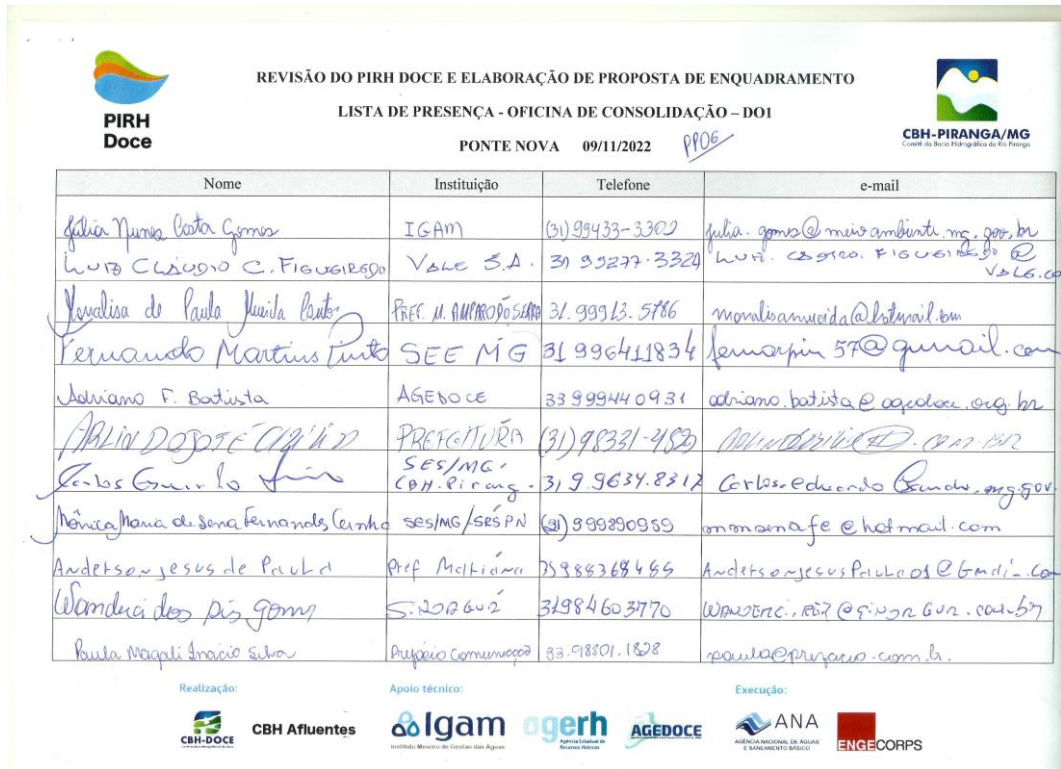 REVISÃO DO PIRH DOCE E ELABORAÇÃO DE PROPOSTA DE ENQUADRAMENTO
LISTA DE PRESENÇA - OFICINA DE CONSOLIDAÇÃO – DO1
PONTE NOVA 09/11/2022 PP06
PIRH
Doce
CBH-PIRANGA/MG
Comitê da Bacia Hidrográfica do Rio Piranga
Nome Instituição Telefone e-mail
Júlia Nunes Costa Gomes IGAM (31) 99433-3302 julia.gomes@meioambiente.mg.gov.br
LUIZ CLÁUDIO C. FIGUEIREDO VALE S.A. 31 99277-3324 LUIZ. CASTRO. FIGUEIREDO @
VALE.CO
de Paula Almeida PREF. M. AMPARO DO SERRA 31.99913.5786 monalisamucida@hotmail.com
Fernando Martins Pinto SEE MG 31 996411834 femarpin57@gmail.com
Adriano F. Batista AGEDOCE 33 999440931 adriano.batista@agedoce.org.br
ARLINDO JOSÉ PREFEITURA (31)98331-
Carlos SES/MG.
CBH.Pirang - 31 9.9634.8312 Carlos.eduardo mg.gov.
Mônica Maria de Sena Fernandes Cunha SES/MG/SRSPN (31) 999890959 monsenafe@hotmail.com
Anderson jesus de Paula Pref Mariana Andersonjesuspaula01@Gmai-.com
Wanderci dos Reis gomes 31984603770
Paula Magali Inacio Silva Prefácio Comunicação 33.98801.1828 paula@prefacio.com.br.
Realização: Apoio técnico: Execução:
CBH-DOCE CBH Afluentes Igam agerh AGEDOCE ANA ENGECORPS
Instituto Mineiro de Gestão das Águas
Agência Estadual de
Recursos Hídricos
AGÊNCIA NACIONAL DE ÁGUAS
E SANEAMENTO BÁSICO